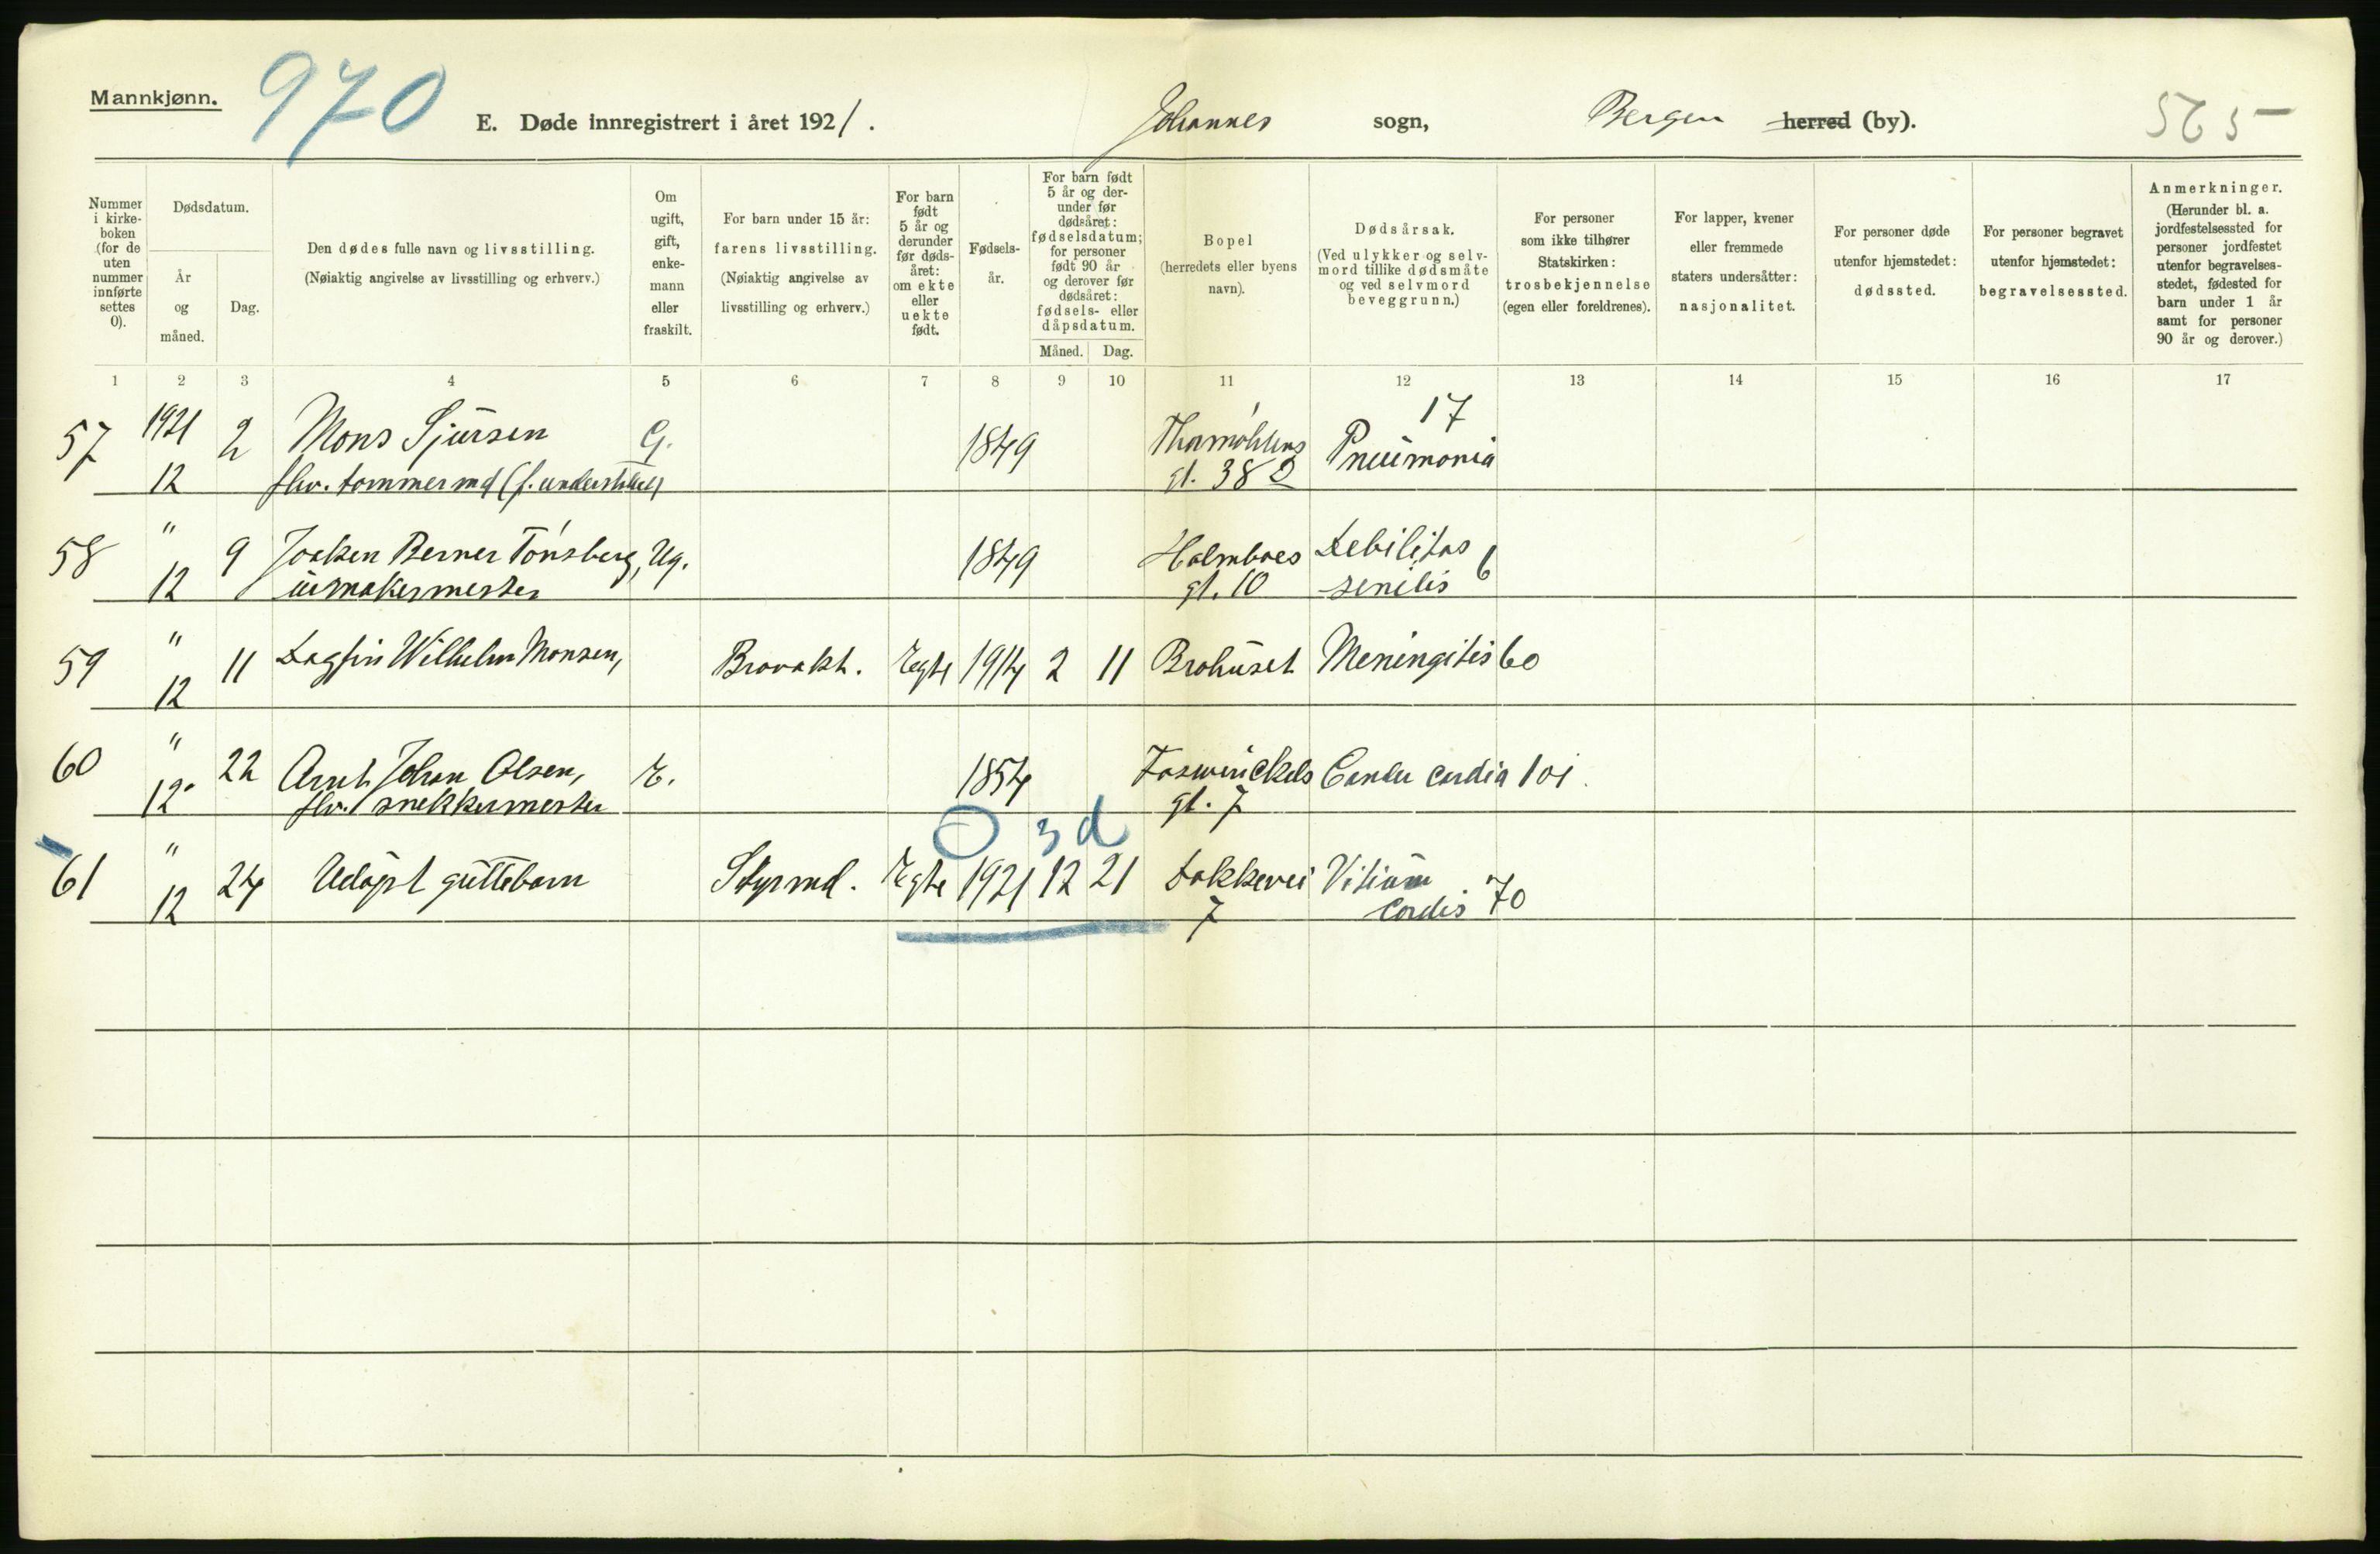 Mannkjønn.
970
E. Døde innregistrert i året 1921.
Johannes sogn,
Bergen herred (by).
565
Nummer i kirkeboken (for de uten nummer innførte settes 0).
Dødsdatum.
År og måned.
Dag.
Den dødes fulle navn og livsstilling.
(Nøiaktig angivelse av livsstilling og erhverv.)
Om ugift, gift, enkemann eller fraskilt.
For barn under 15 år:
farens livsstilling.
(Nøiaktig angivelse av livsstilling og erhverv.)
For barn født 5 år og derunder før dødsåret: om ekte eller uekte født.
Fødselsår.
For barn født 5 år og derunder før dødsåret: fødselsdatum; for personer født 90 år og derover før dødsåret: fødsels- eller dåpsdatum.
Måned. Dag.
Bopel
(herredets eller byens navn).
Dødsårsak.
(Ved ulykker og selvmord tillike dødsmåte og ved selvmord beveggrunn.)
For personer som ikke tilhører Statskirken: trosbekjennelse (egen eller foreldrenes).
For lapper, kvener eller fremmede staters undersåtter: nasjonalitet.
For personer døde utenfor hjemstedet: dødssted.
For personer begravet utenfor hjemstedet: begravelsessted.
Anmerkninger.
(Herunder bl. a. jordfestelsessted for personer jordfestet utenfor begravelsesstedet, fødested for barn under 1 år samt for personer 90 år og derover.)
1 2 3 4 5 6 7 8 9 10 11 12 13 14 15 16 17
57 1921 2 Mons Sjursen G. 1849 17
12 fhv. tømmermd (f. understøttet) gt. 38 Pneumonia
58 " 9 Joaken Berner Tönsberg, Ug. 1849 Holmboes Debilitas
12 urmakermester gt. 10 senilis 6
59 " 11 Dagfin Wilhelm Monsen, Brovakt. Egte 1914 2 11 Brohuset Meningitis 60
12
60 " 22 Arnt Johan Olsen, E. 1854 Foswinckels Cancer cardia 101
12 fhv. snekkermester gt. 7
0 3 d
61 " 24 Udöpt guttebarn Styrmd. Egte 1921 12 21 Bakkevei Vitium
12 7 Cordis 70